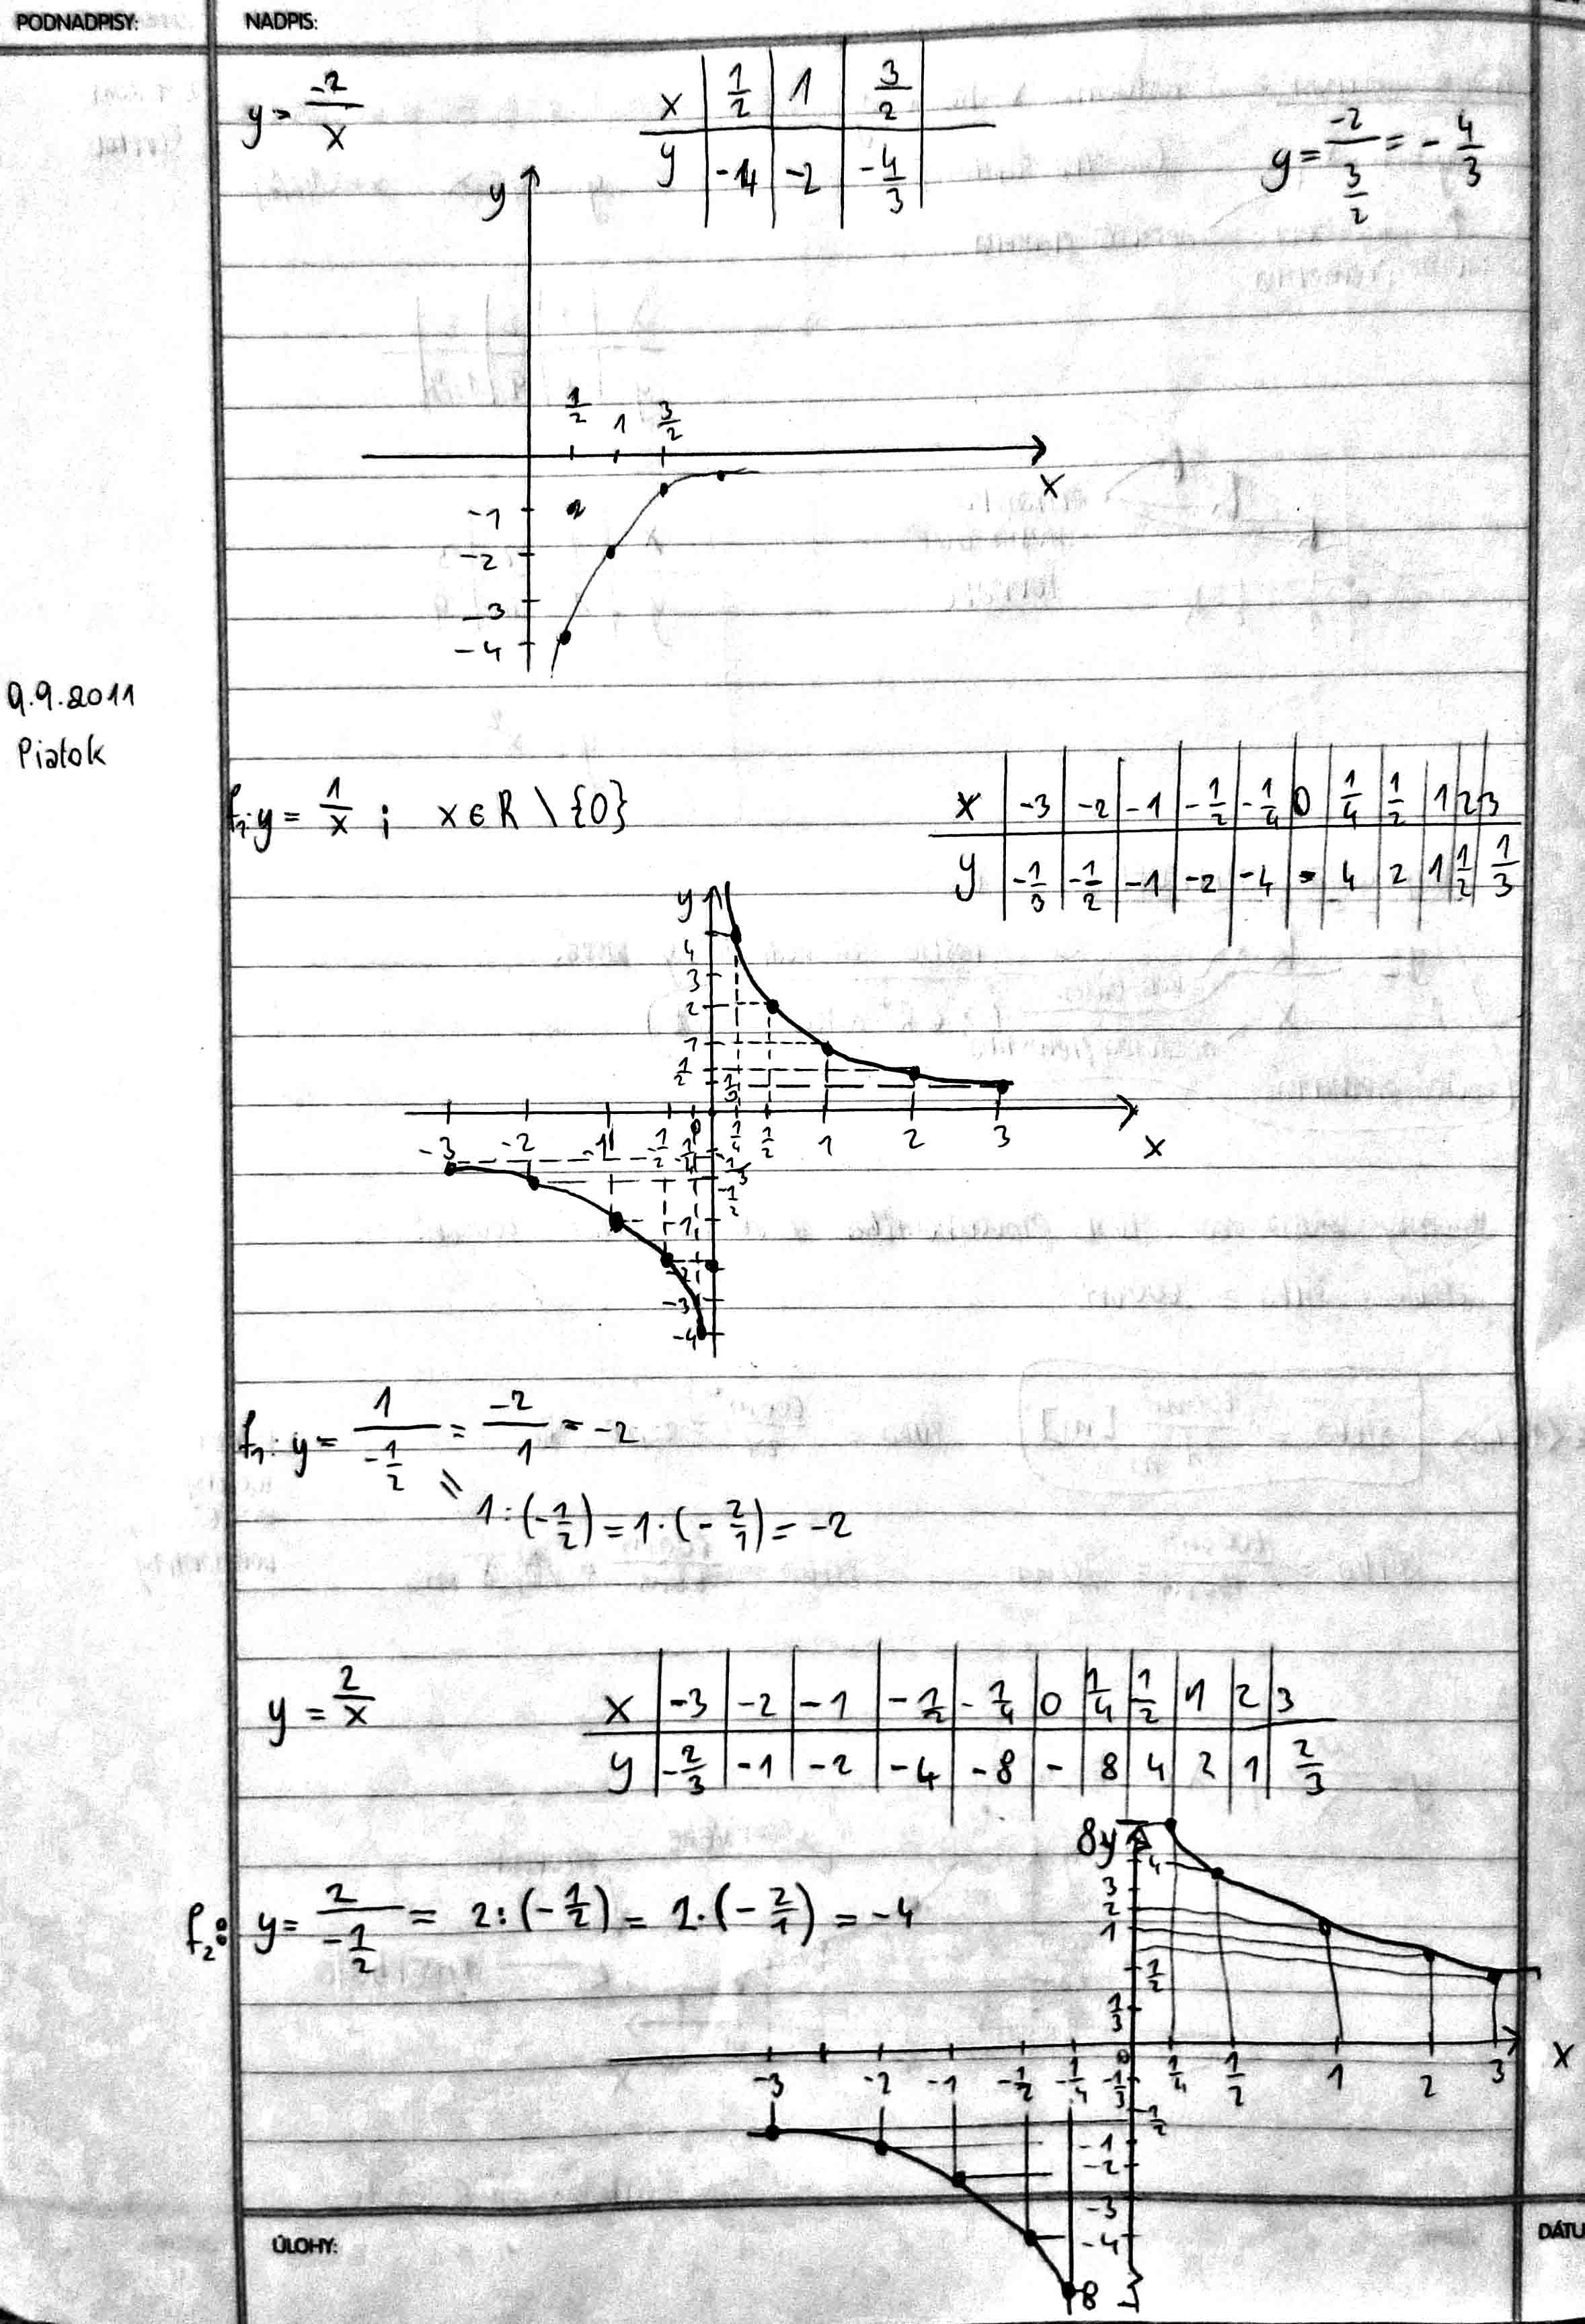 PODNADPISY: NADPIS:
y = -2/x
x | 1/2 | 1 | 3/2
y | -4 | -2 | -4/3
y = -2/(3/2) = -4/3
y
1/2 1 3/2
x
-1
-2
-3
-4
9.9.2011
Piatok
f₁: y = 1/x ; x ∈ R \ {0}
x | -3 | -2 | -1 | -1/2 | -1/4 | 0 | 1/4 | 1/2 | 1 | 2 | 3
y | -1/3 | -1/2 | -1 | -2 | -4 | - | 4 | 2 | 1 | 1/2 | 1/3
y
4
3
2
1
1/2 1/3
-3 -2 -1 -1/2 -1/4 0 1/4 1/2 1 2 3 x
-1/3
-1/2
-1
-2
-3
-4
f₁: y = 1/(-1/2) = -2/1 = -2
= 1 : (-1/2) = 1 · (-2/1) = -2
y = 2/x
x | -3 | -2 | -1 | -1/2 | -1/4 | 0 | 1/4 | 1/2 | 1 | 2 | 3
y | -2/3 | -1 | -2 | -4 | -8 | - | 8 | 4 | 2 | 1 | 2/3
f₂: y = 2/(-1/2) = 2 : (-1/2) = 2 · (-2/1) = -4
8 y
4
3
2
1
1/2
1/3
-3 -2 -1 -1/2 -1/4 0 1/4 1/2 1 2 3 x
-1/3
-1/2
-1
-2
-3
-4
-8
ÚLOHY: DÁTU